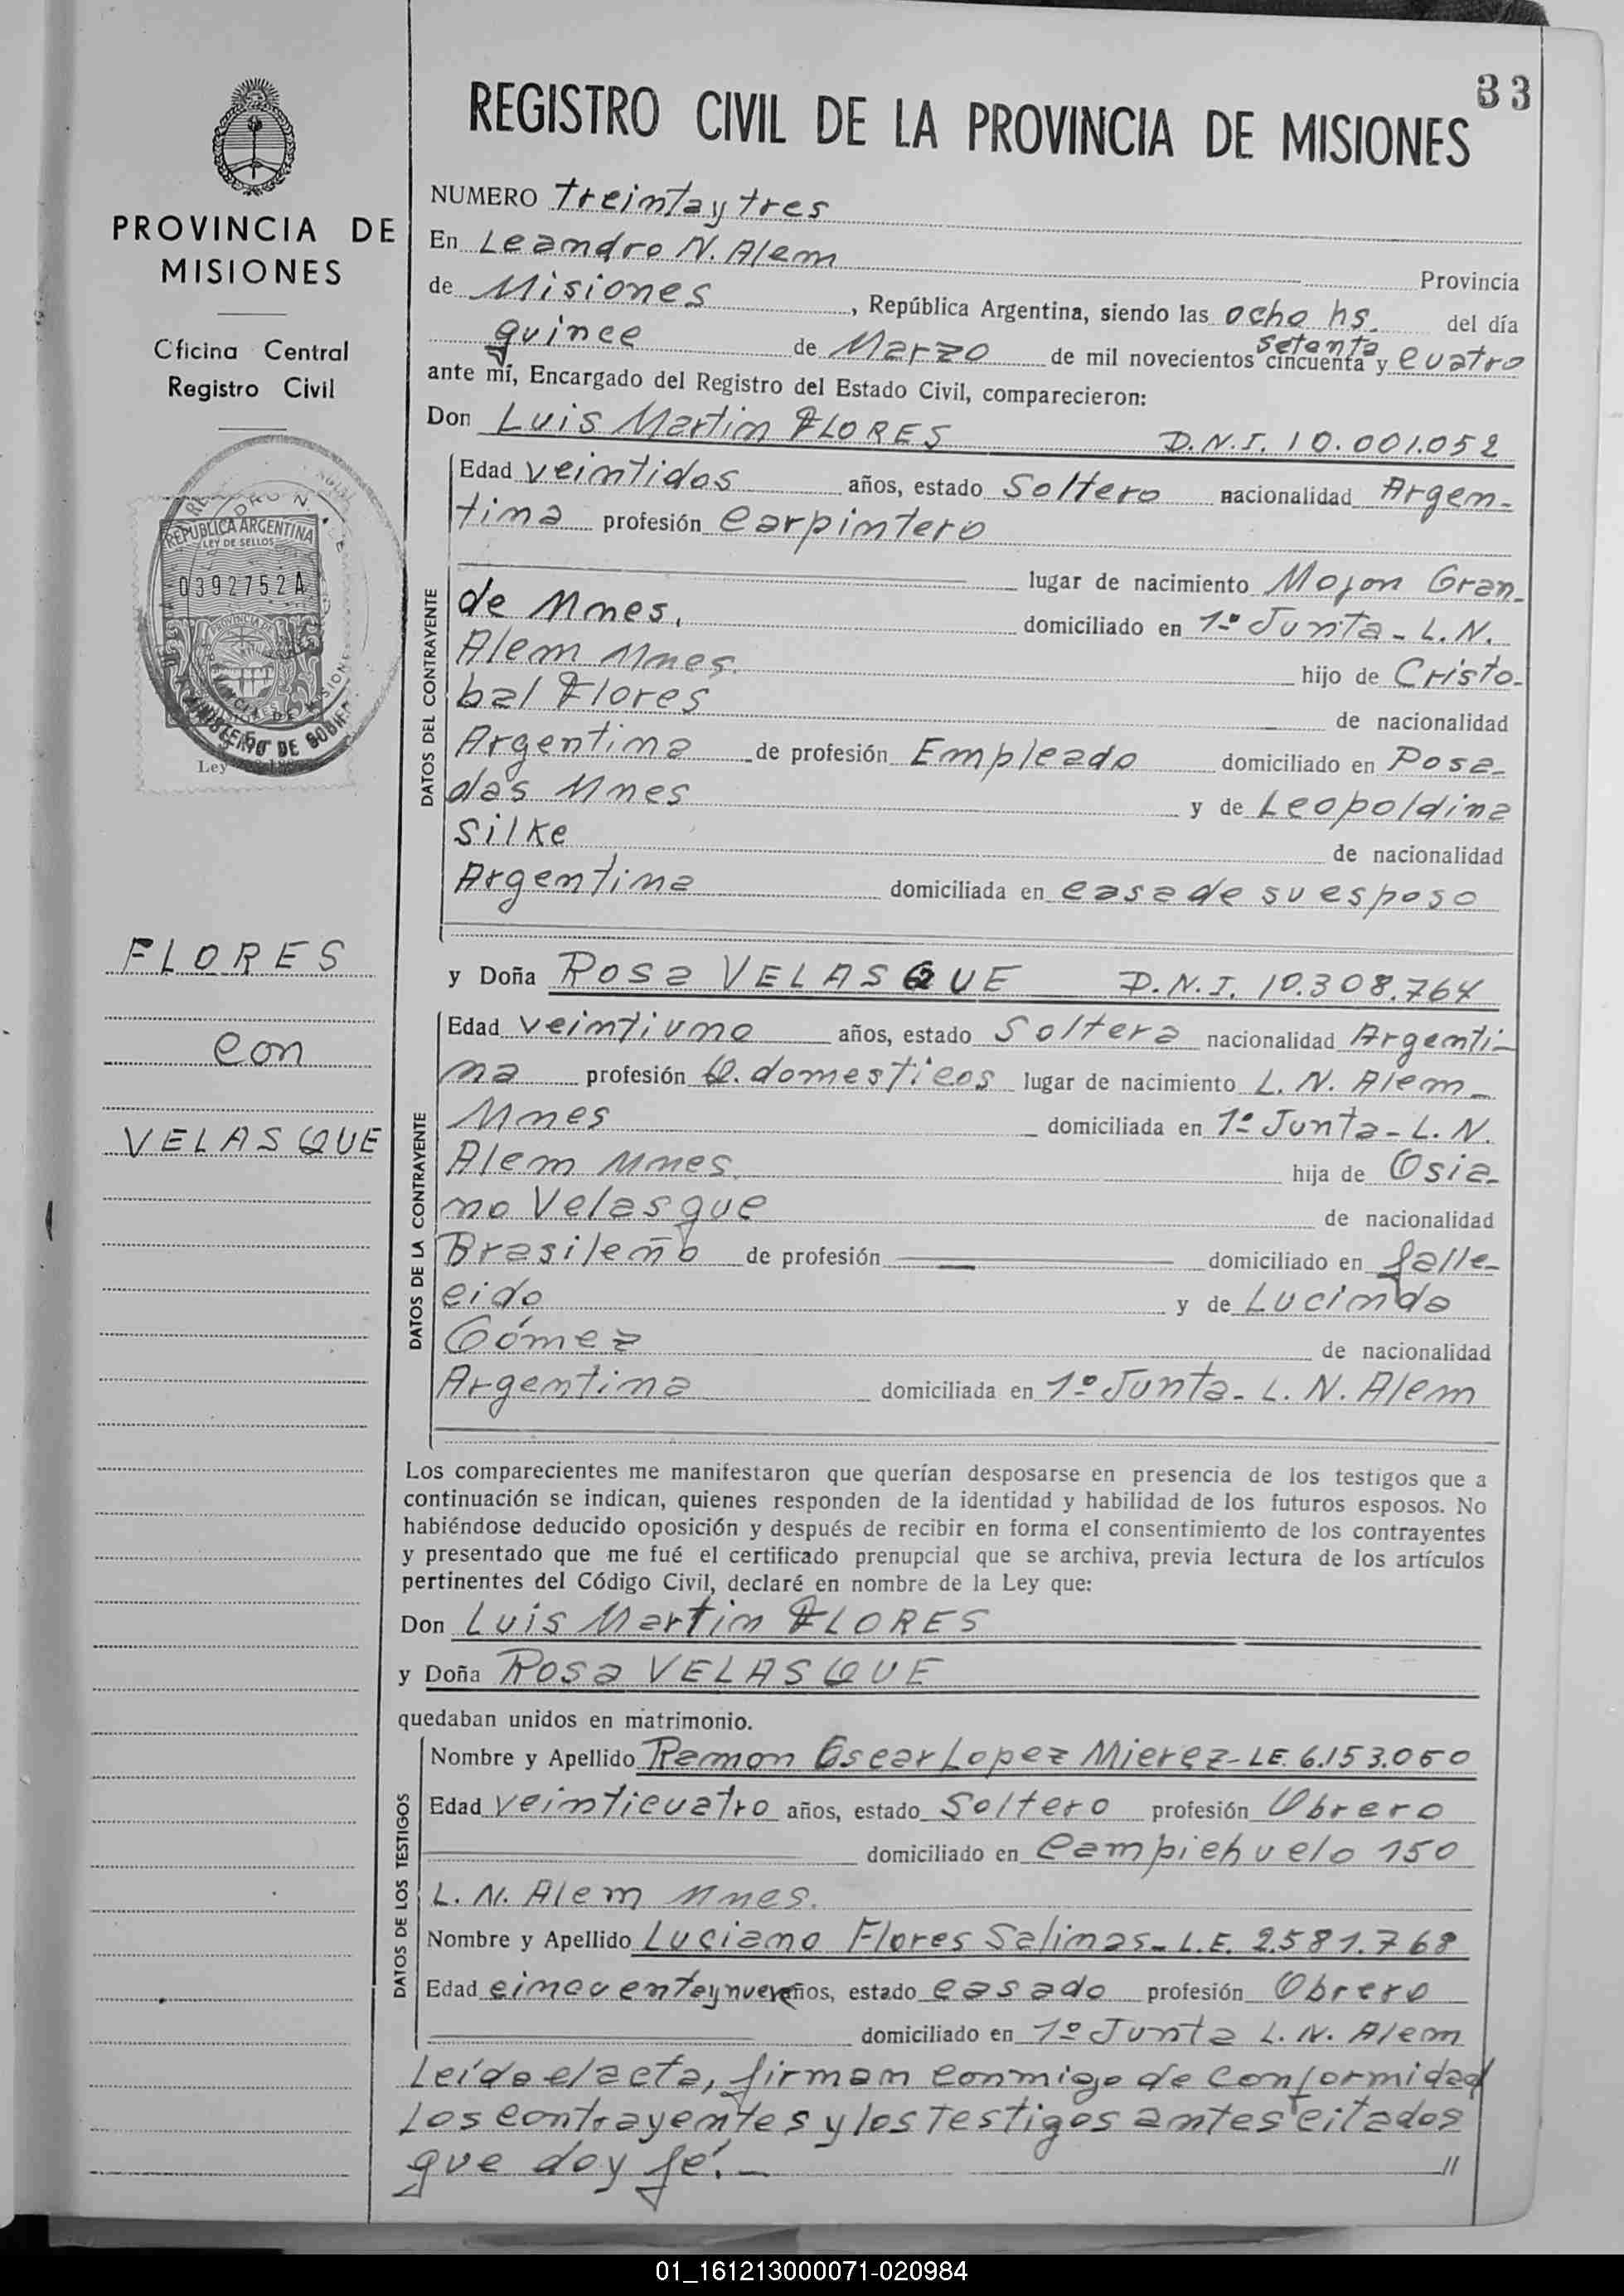 33
REGISTRO CIVIL DE LA PROVINCIA DE MISIONES
PROVINCIA DE
MISIONES
Oficina Central
Registro Civil
REPUBLICA ARGENTINA
LEY DE SELLOS
0392752A
MINISTERIO DE GOBIER
Ley
FLORES
con
VELASQUE
NUMERO treinta y tres
En Leandro N. Alem Provincia
de Misiones, República Argentina, siendo las ocho hs. del día
quince de Marzo de mil novecientos cincuenta setenta y cuatro
ante mí, Encargado del Registro del Estado Civil, comparecieron:
Don Luis Martin FLORES D.N.I. 10.001.052
DATOS DEL CONTRAYENTE
Edad veintidos años, estado Soltero nacionalidad Argen-
tina profesión carpintero
lugar de nacimiento Mojon Gran-
de Mnes. domiciliado en 1º Junta - L.N.
Alem Mnes. hijo de Cristo-
bal Flores de nacionalidad
Argentina de profesión Empleado domiciliado en Posa-
das Mnes y de Leopoldina
Silke de nacionalidad
Argentina domiciliada en casa de su esposo
y Doña Rosa VELASQUE D.N.I. 10.308.764
DATOS DE LA CONTRAYENTE
Edad veintiuno años, estado Soltera nacionalidad Argenti-
na profesión Q. domesticos lugar de nacimiento L. N. Alem -
Mnes domiciliada en 1º Junta - L. N.
Alem Mnes. hija de Osia-
no Velasque de nacionalidad
Brasileño de profesión domiciliado en falle-
cido y de Lucinda
Gómez de nacionalidad
Argentina domiciliada en 1º Junta - L. N. Alem
Los comparecientes me manifestaron que querían desposarse en presencia de los testigos que a
continuación se indican, quienes responden de la identidad y habilidad de los futuros esposos. No
habiéndose deducido oposición y después de recibir en forma el consentimiento de los contrayentes
y presentado que me fué el certificado prenupcial que se archiva, previa lectura de los artículos
pertinentes del Código Civil, declaré en nombre de la Ley que:
Don Luis Martin FLORES
y Doña Rosa VELASQUE
quedaban unidos en matrimonio.
DATOS DE LOS TESTIGOS
Nombre y Apellido Ramon Oscar Lopez Mierez - LE. 6.153.050
Edad veinticuatro años, estado Soltero profesión Obrero
domiciliado en Campichuelo 150
L. N. Alem Mnes.
Nombre y Apellido Luciano Flores Salinas - L.E. 2.581.768
Edad cincuenta y nueve años, estado casado profesión Obrero
domiciliado en 1º Junta L. N. Alem
Leída el acta, firman conmigo de conformidad
los contrayentes y los testigos antes citados
que doy fé. -
01_161213000071-020984